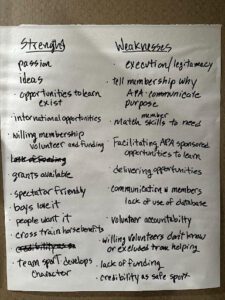 Strenghs
passion
ideas
opportunities to learn
exist
international opportunities
willing membership
volunteer and funding
lack of funding
grants available
spectator friendly
boys love it
people want it
cross train horse benefits
team sport develops
character
Weaknesses
execution/legitamacy
tell membership why
APA communicate
purpose
member
match skills to need
Facilitating APA sponsored
opportunities to learn
delivering opportunities
communication w members
lack of use of database
volunteer accountabilty
willing volunteers don't know
or excluded from helping
lack of funding
credibility as safe sport